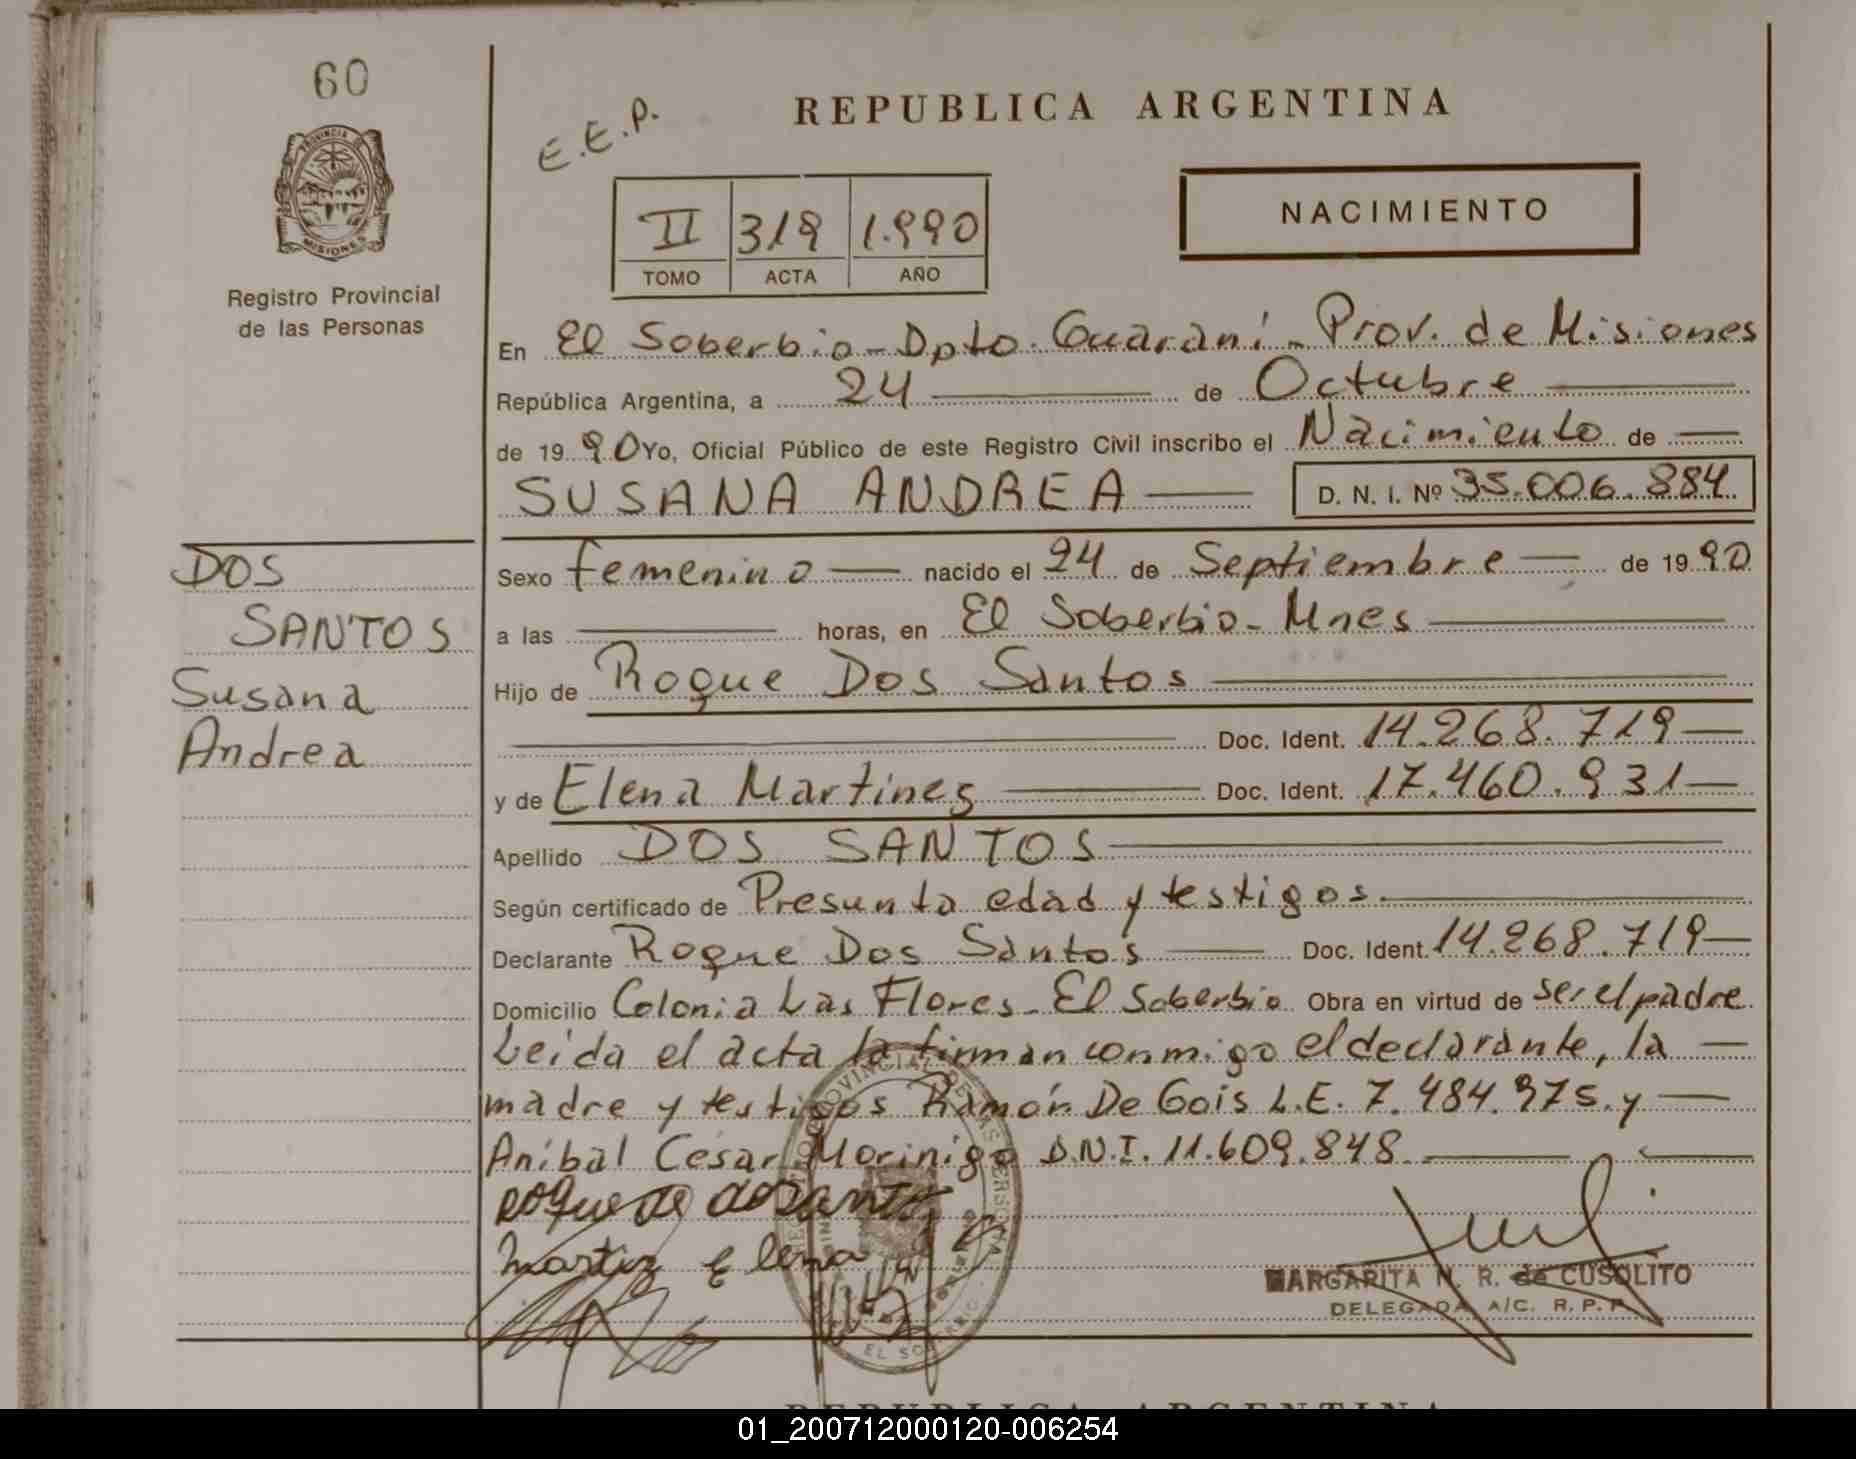 60
E.E.P.
REPUBLICA ARGENTINA
PROVINCIA DE
MISIONES
Registro Provincial
de las Personas
NACIMIENTO
II 319 1.990
TOMO ACTA AÑO
En El Soberbio - Dpto. Guaraní - Prov. de Misiones
República Argentina, a 24 de Octubre
de 1990 Yo, Oficial Público de este Registro Civil inscribo el Nacimiento de
SUSANA ANDREA D. N. I. Nº 35.006.884
DOS
SANTOS
Susana
Andrea
Sexo femenino nacido el 24 de Septiembre de 1990
a las horas, en El Soberbio - Mnes
Hijo de Roque Dos Santos
Doc. Ident. 14.268.719
y de Elena Martinez Doc. Ident. 17.460.931
Apellido DOS SANTOS
Según certificado de Presunta edad y testigos.
Declarante Roque Dos Santos Doc. Ident. 14.268.719
Domicilio Colonia Las Flores - El Soberbio Obra en virtud de ser el padre
Leída el acta la firman conmigo el declarante, la
madre y testigos Ramón De Gois L.E. 7.484.975. y
Aníbal César Morinigo D.N.I. 11.609.848
Roque dosantos
Martin Elena
MARGARITA N. R. de CUSOLITO
DELEGADA A/C. R. P. P.
REPUBLICA ARGENTINA
01_200712000120-006254